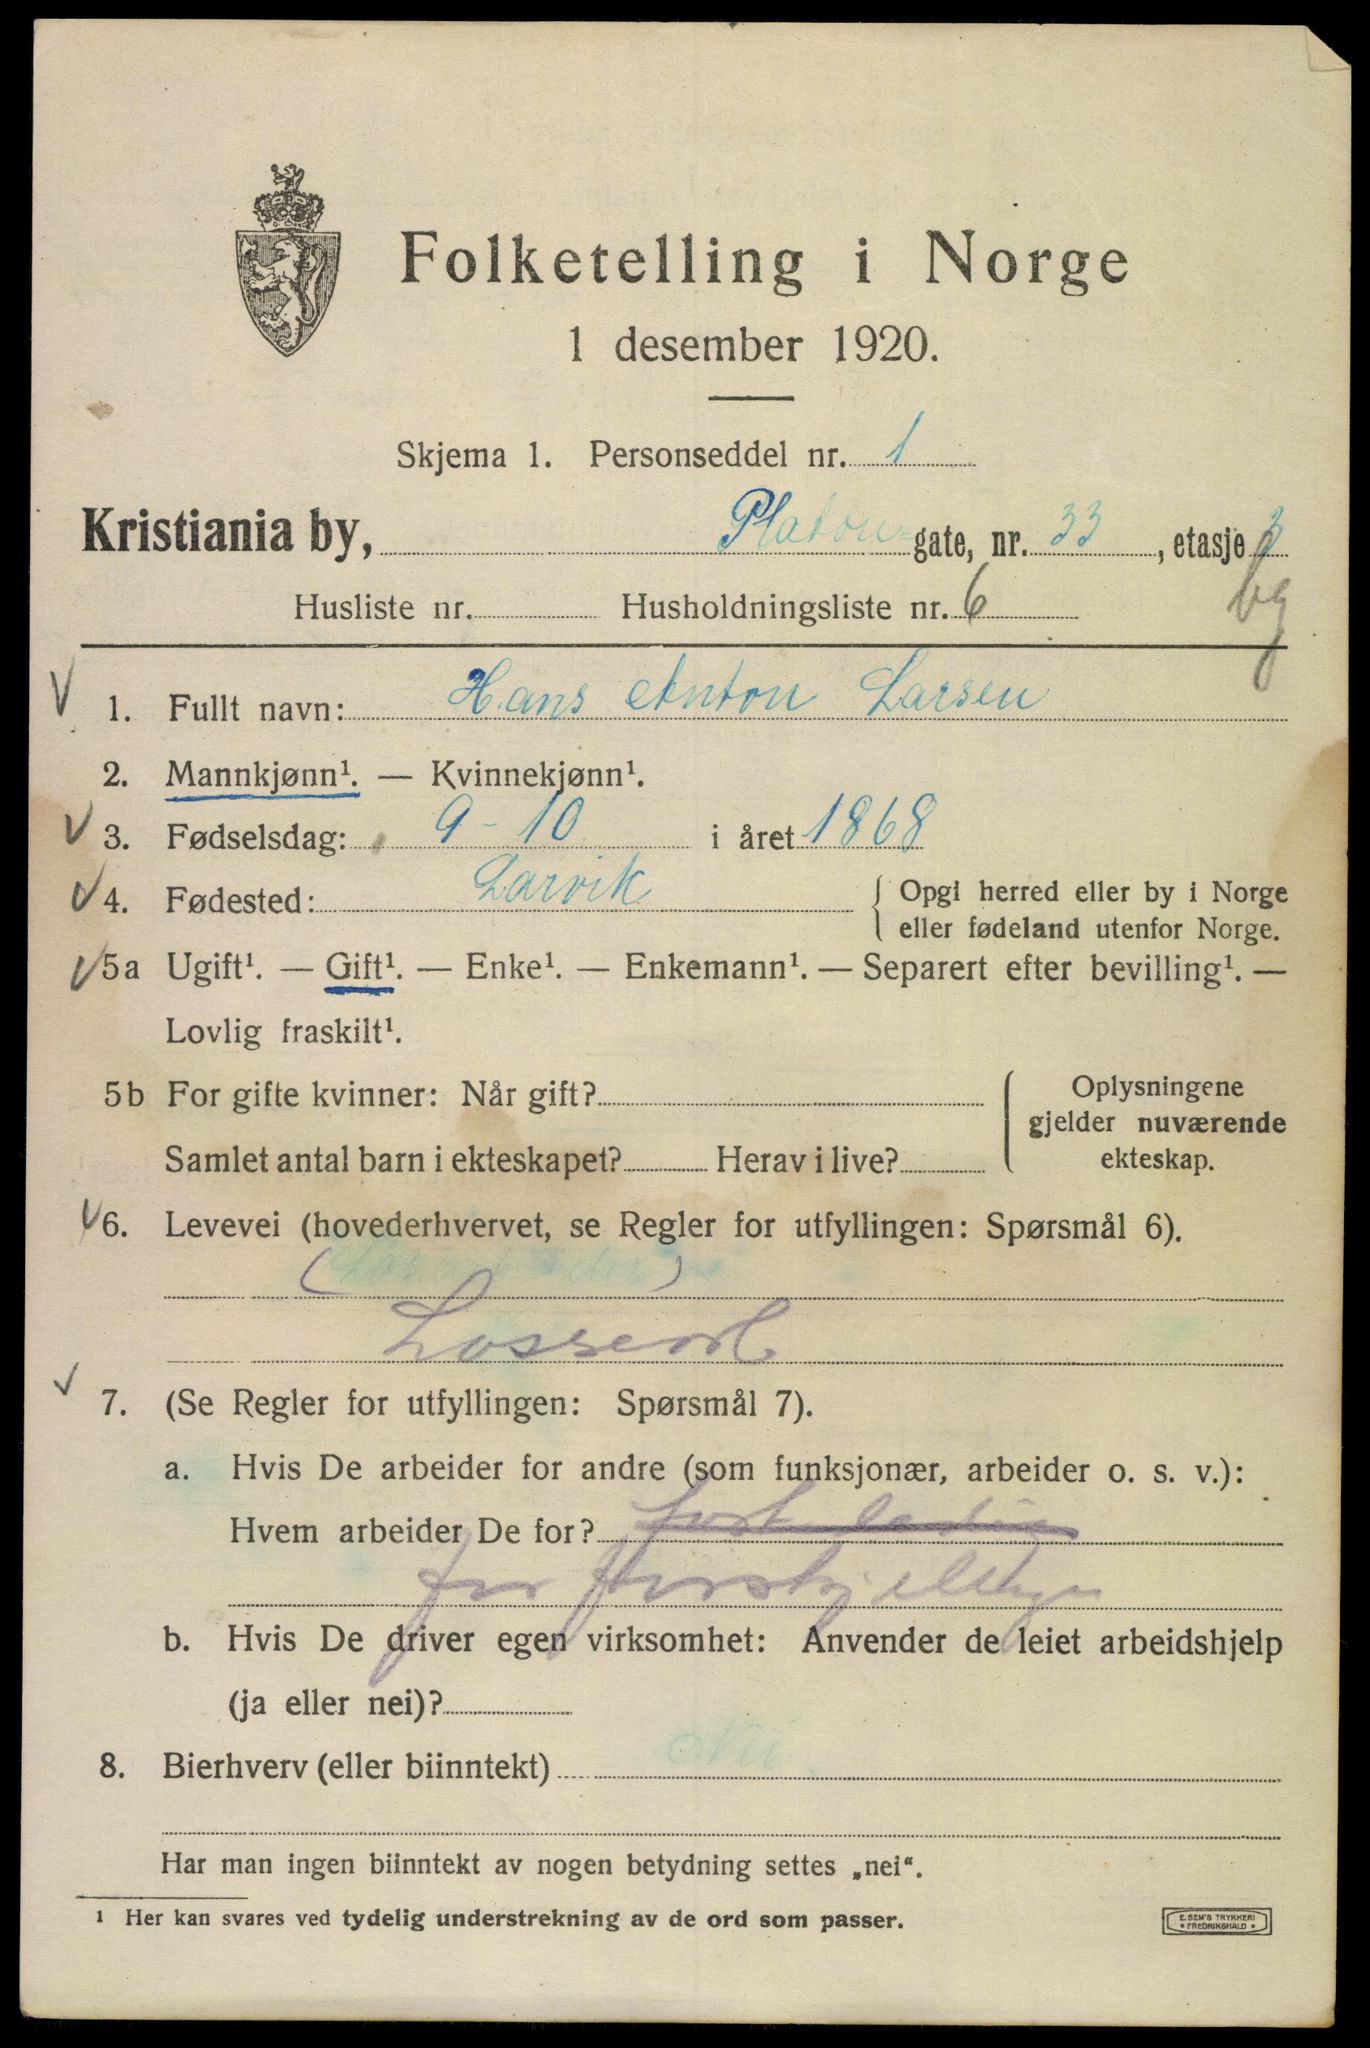 Folketelling i Norge
1 desember 1920.
Skjema 1. Personseddel nr. 1
Kristiania by, Platous gate, nr. 33, etasje 3
Husliste nr. Husholdningsliste nr. 6 bg
1. Fullt navn: Hans Anton Larsen
2. Mannkjønn¹. — Kvinnekjønn¹.
3. Fødselsdag: 9-10 i året 1868
4. Fødested: Larvik { Opgi herred eller by i Norge
eller fødeland utenfor Norge.
5a Ugift¹. — Gift¹. — Enke¹. — Enkemann¹. — Separert efter bevilling¹. —
Lovlig fraskilt¹.
5b For gifte kvinner: Når gift? { Oplysningene
gjelder nuværende
Samlet antal barn i ekteskapet? Herav i live? ekteskap.
6. Levevei (hovederhvervet, se Regler for utfyllingen: Spørsmål 6).
(Løsarbeider)
Lossearb
7. (Se Regler for utfyllingen: Spørsmål 7).
a. Hvis De arbeider for andre (som funksjonær, arbeider o. s. v.):
Hvem arbeider De for?
for forskjellige
b. Hvis De driver egen virksomhet: Anvender de leiet arbeidshjelp
(ja eller nei)?
8. Bierhverv (eller biinntekt) Nei
Har man ingen biinntekt av nogen betydning settes „nei“.
¹ Her kan svares ved tydelig understrekning av de ord som passer.
E. SEM'S TRYKKERI
FREDRIKSHALD